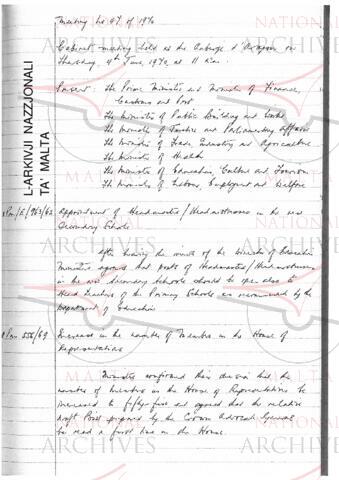 Meeting No 47 of 1970
Cabinet meeting held at the Auberge d'Aragon on
Thursday, 4th June, 1970, at 11 a.m.
Present: The Prime Minister and Minister of Finance,
Customs and Port
The Minister of Public Building and Works
The Minister of Justice and Parliamentary Affairs
The Minister of Trade, Industry and Agriculture
The Minister of Health
The Minister of Education, Culture and Tourism
The Minister of Labour, Employment and Welfare
Appointment of Headmasters/Headmistresses in the new
Secondary Schools
After hearing the views of the Minister of Education
Ministers agreed that posts of Headmasters/Headmistresses
in the new Secondary Schools should be open also to
Head Teachers of the Primary Schools as recommended by the
Department of Education
556/69 Increase in the number of Members in the House of
Representatives
Ministers confirmed their decision that the
number of Members in the House of Representatives be
increased to fifty-five and agreed that the relative
draft Bill prepared by the Crown Advocate General
be read a first time in the House.
LARKIVJI NAZZJONALI
TA' MALTA
NATIONAL
ARCHIVES
MALTA